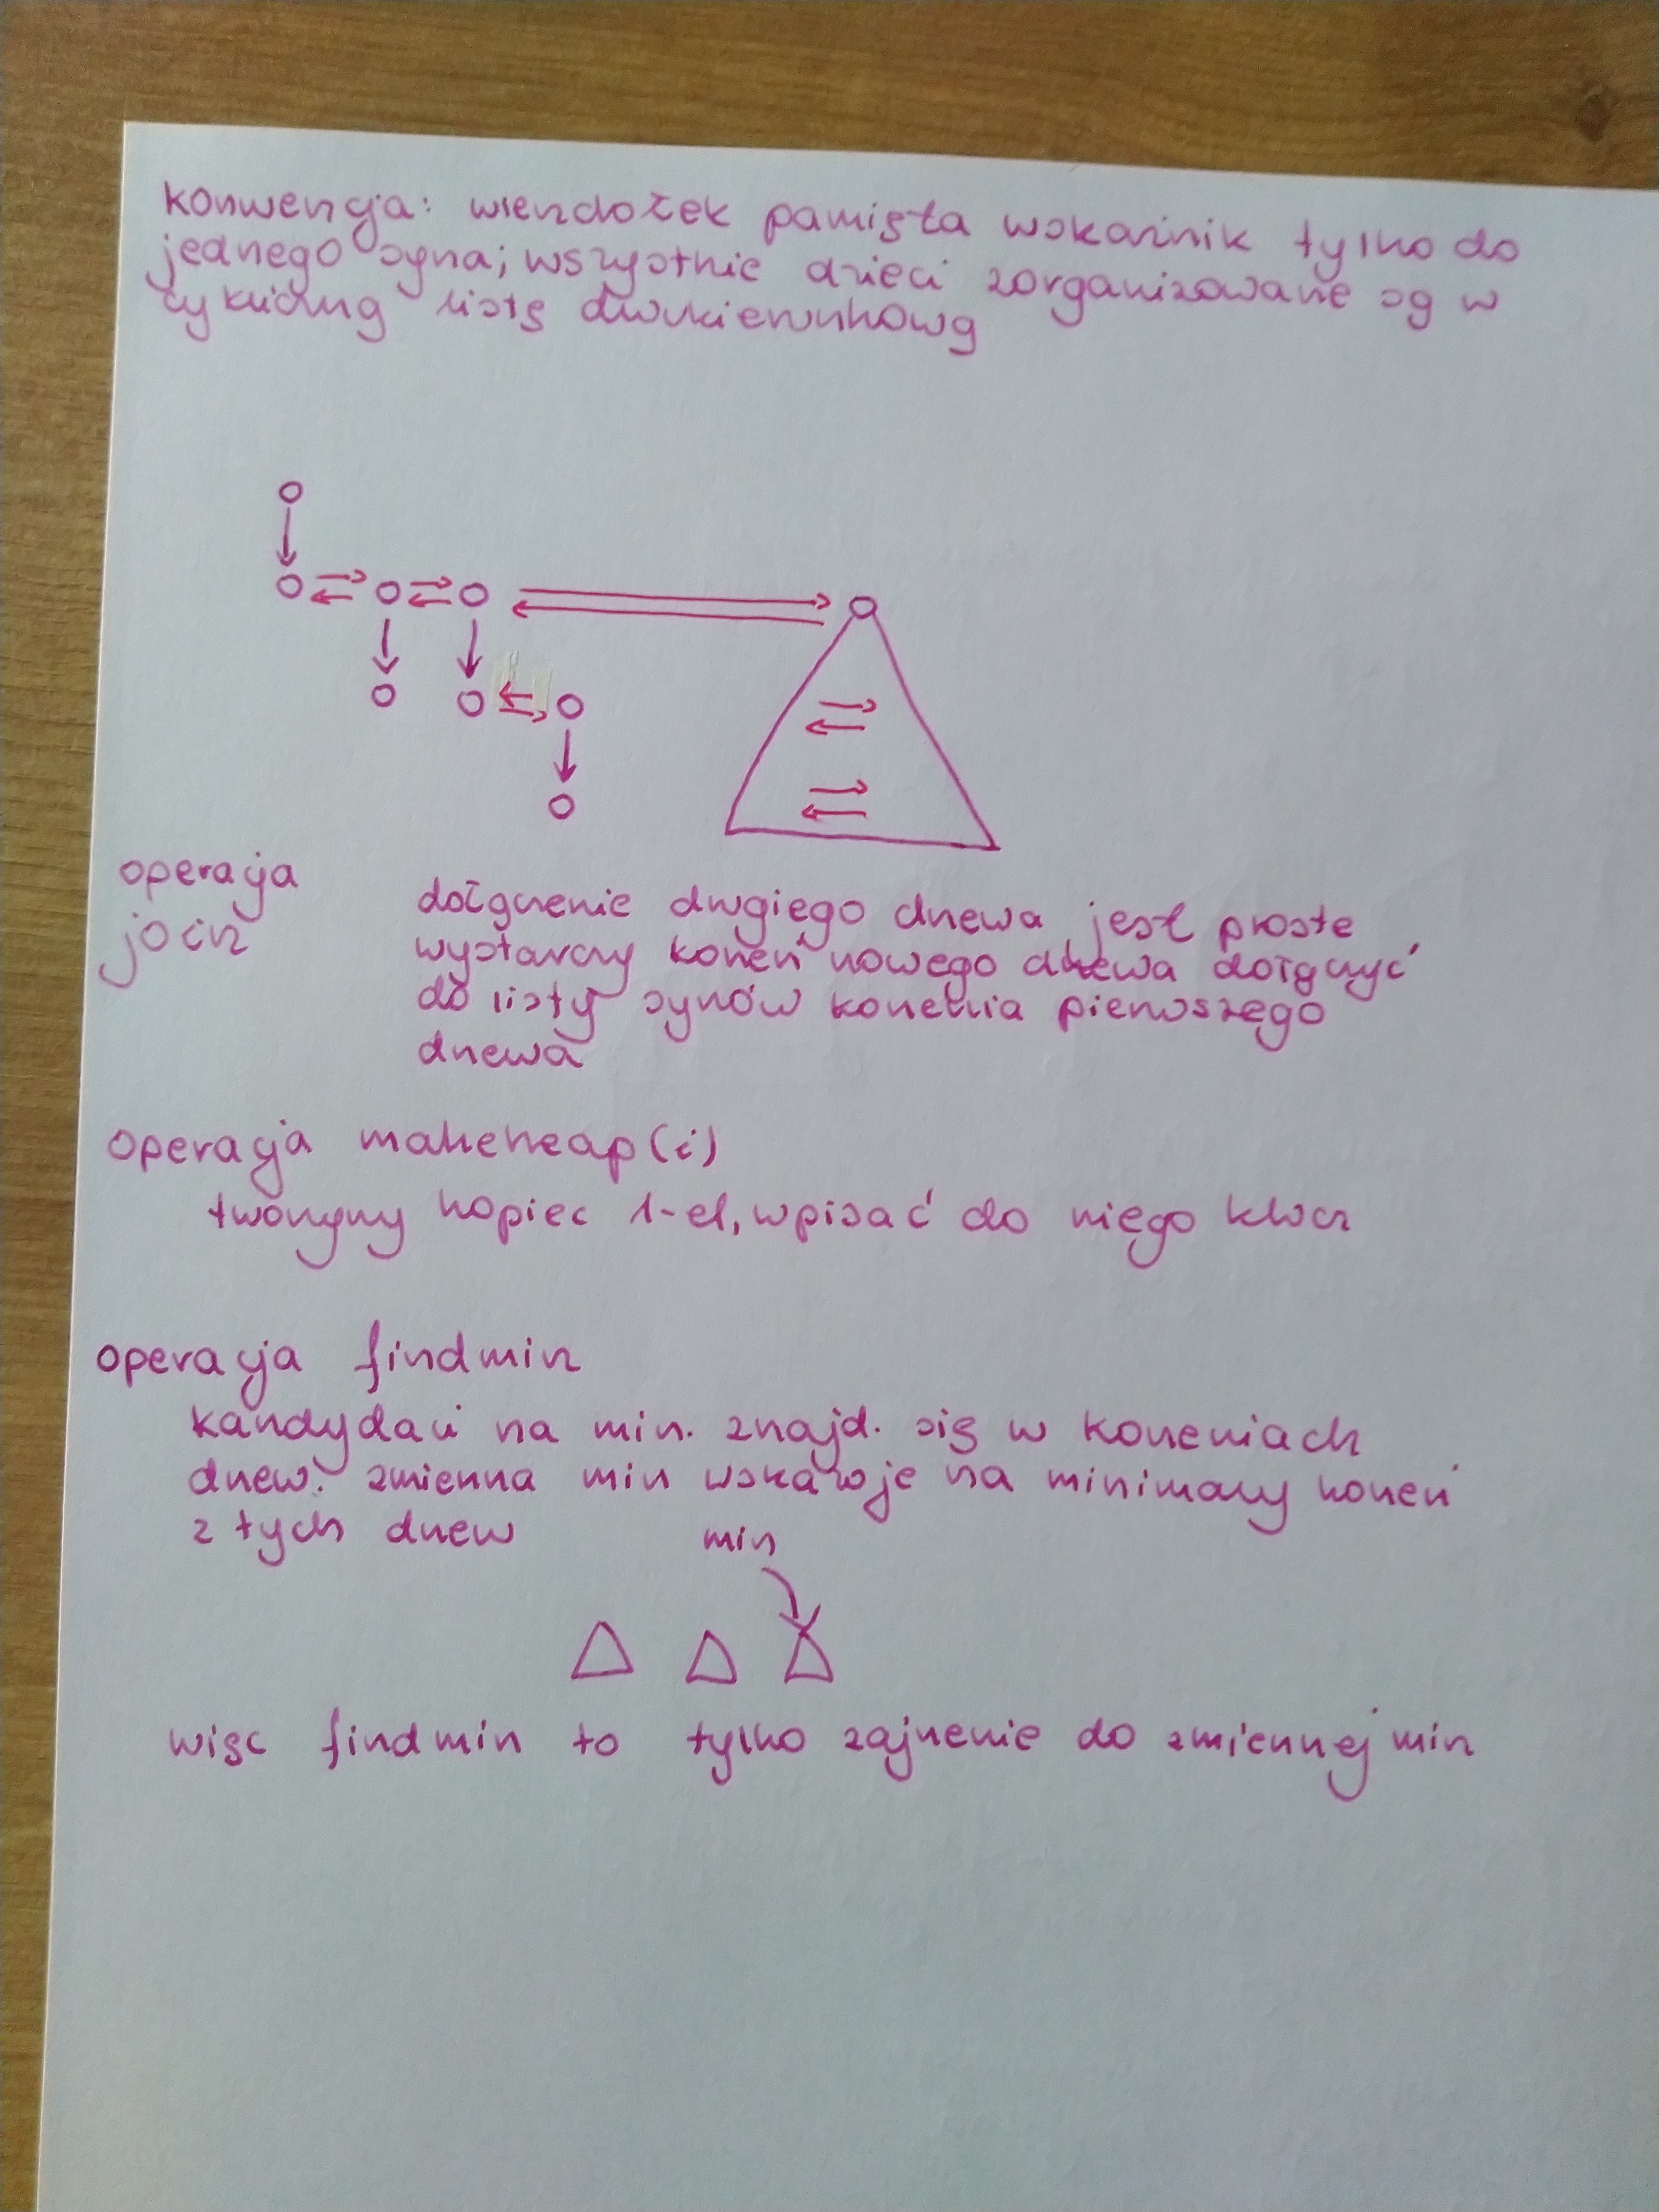 konwencja: wierzchołek pamięta wskaźnik tylko do
jednego syna; wszystkie dzieci zorganizowane są w
cykliczną listę dwukierunkową
operacja
join
dołączenie drugiego drzewa jest proste
wystarczy korzeń nowego drzewa dołączyć
do listy synów korzenia pierwszego
drzewa
operacja makeheap(i)
tworzymy kopiec 1-el, wpisać do niego klucz
operacja findmin
kandydaci na min. znajd. się w korzeniach
drzew. zmienna min wskazuje na minimalny korzeń
z tych drzew
min
więc findmin to tylko zajrzenie do zmiennej min